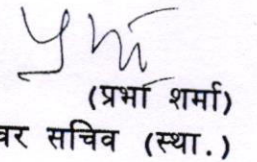 (प्रभा शर्मा)
वर सचिव (स्था.)